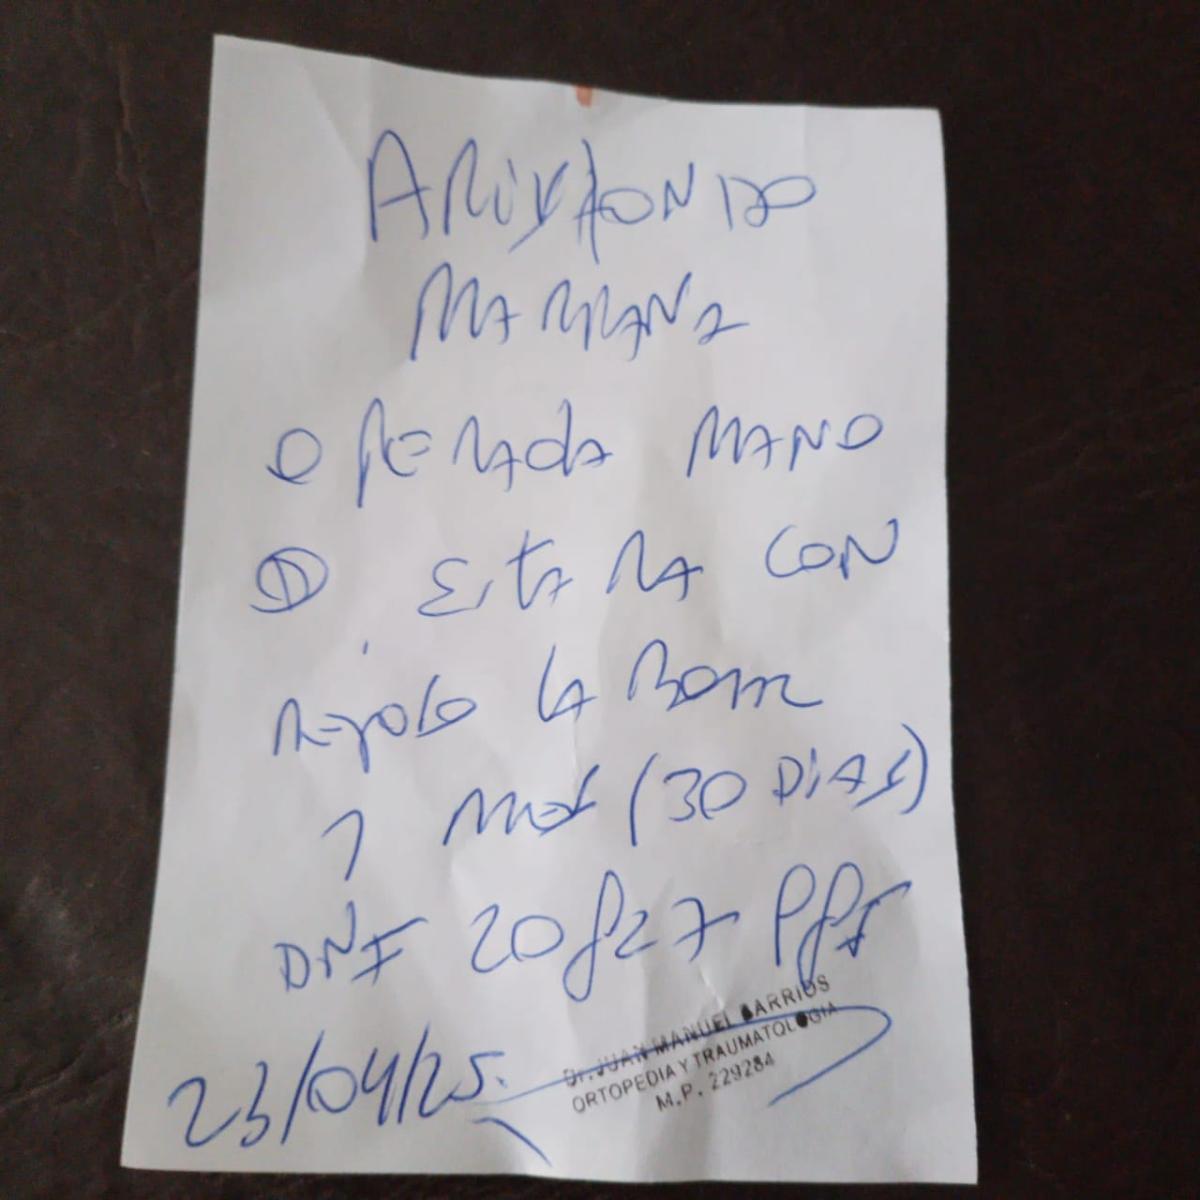 MARIANA
OPERADA MANO
D ESTARA CON
REPOSO LABORAL
1 MES (30 DIAS)
DNI
23/04/25.
Dr. JUAN MANUEL BARRIOS
ORTOPEDIA Y TRAUMATOLOGIA
M.P. 229284